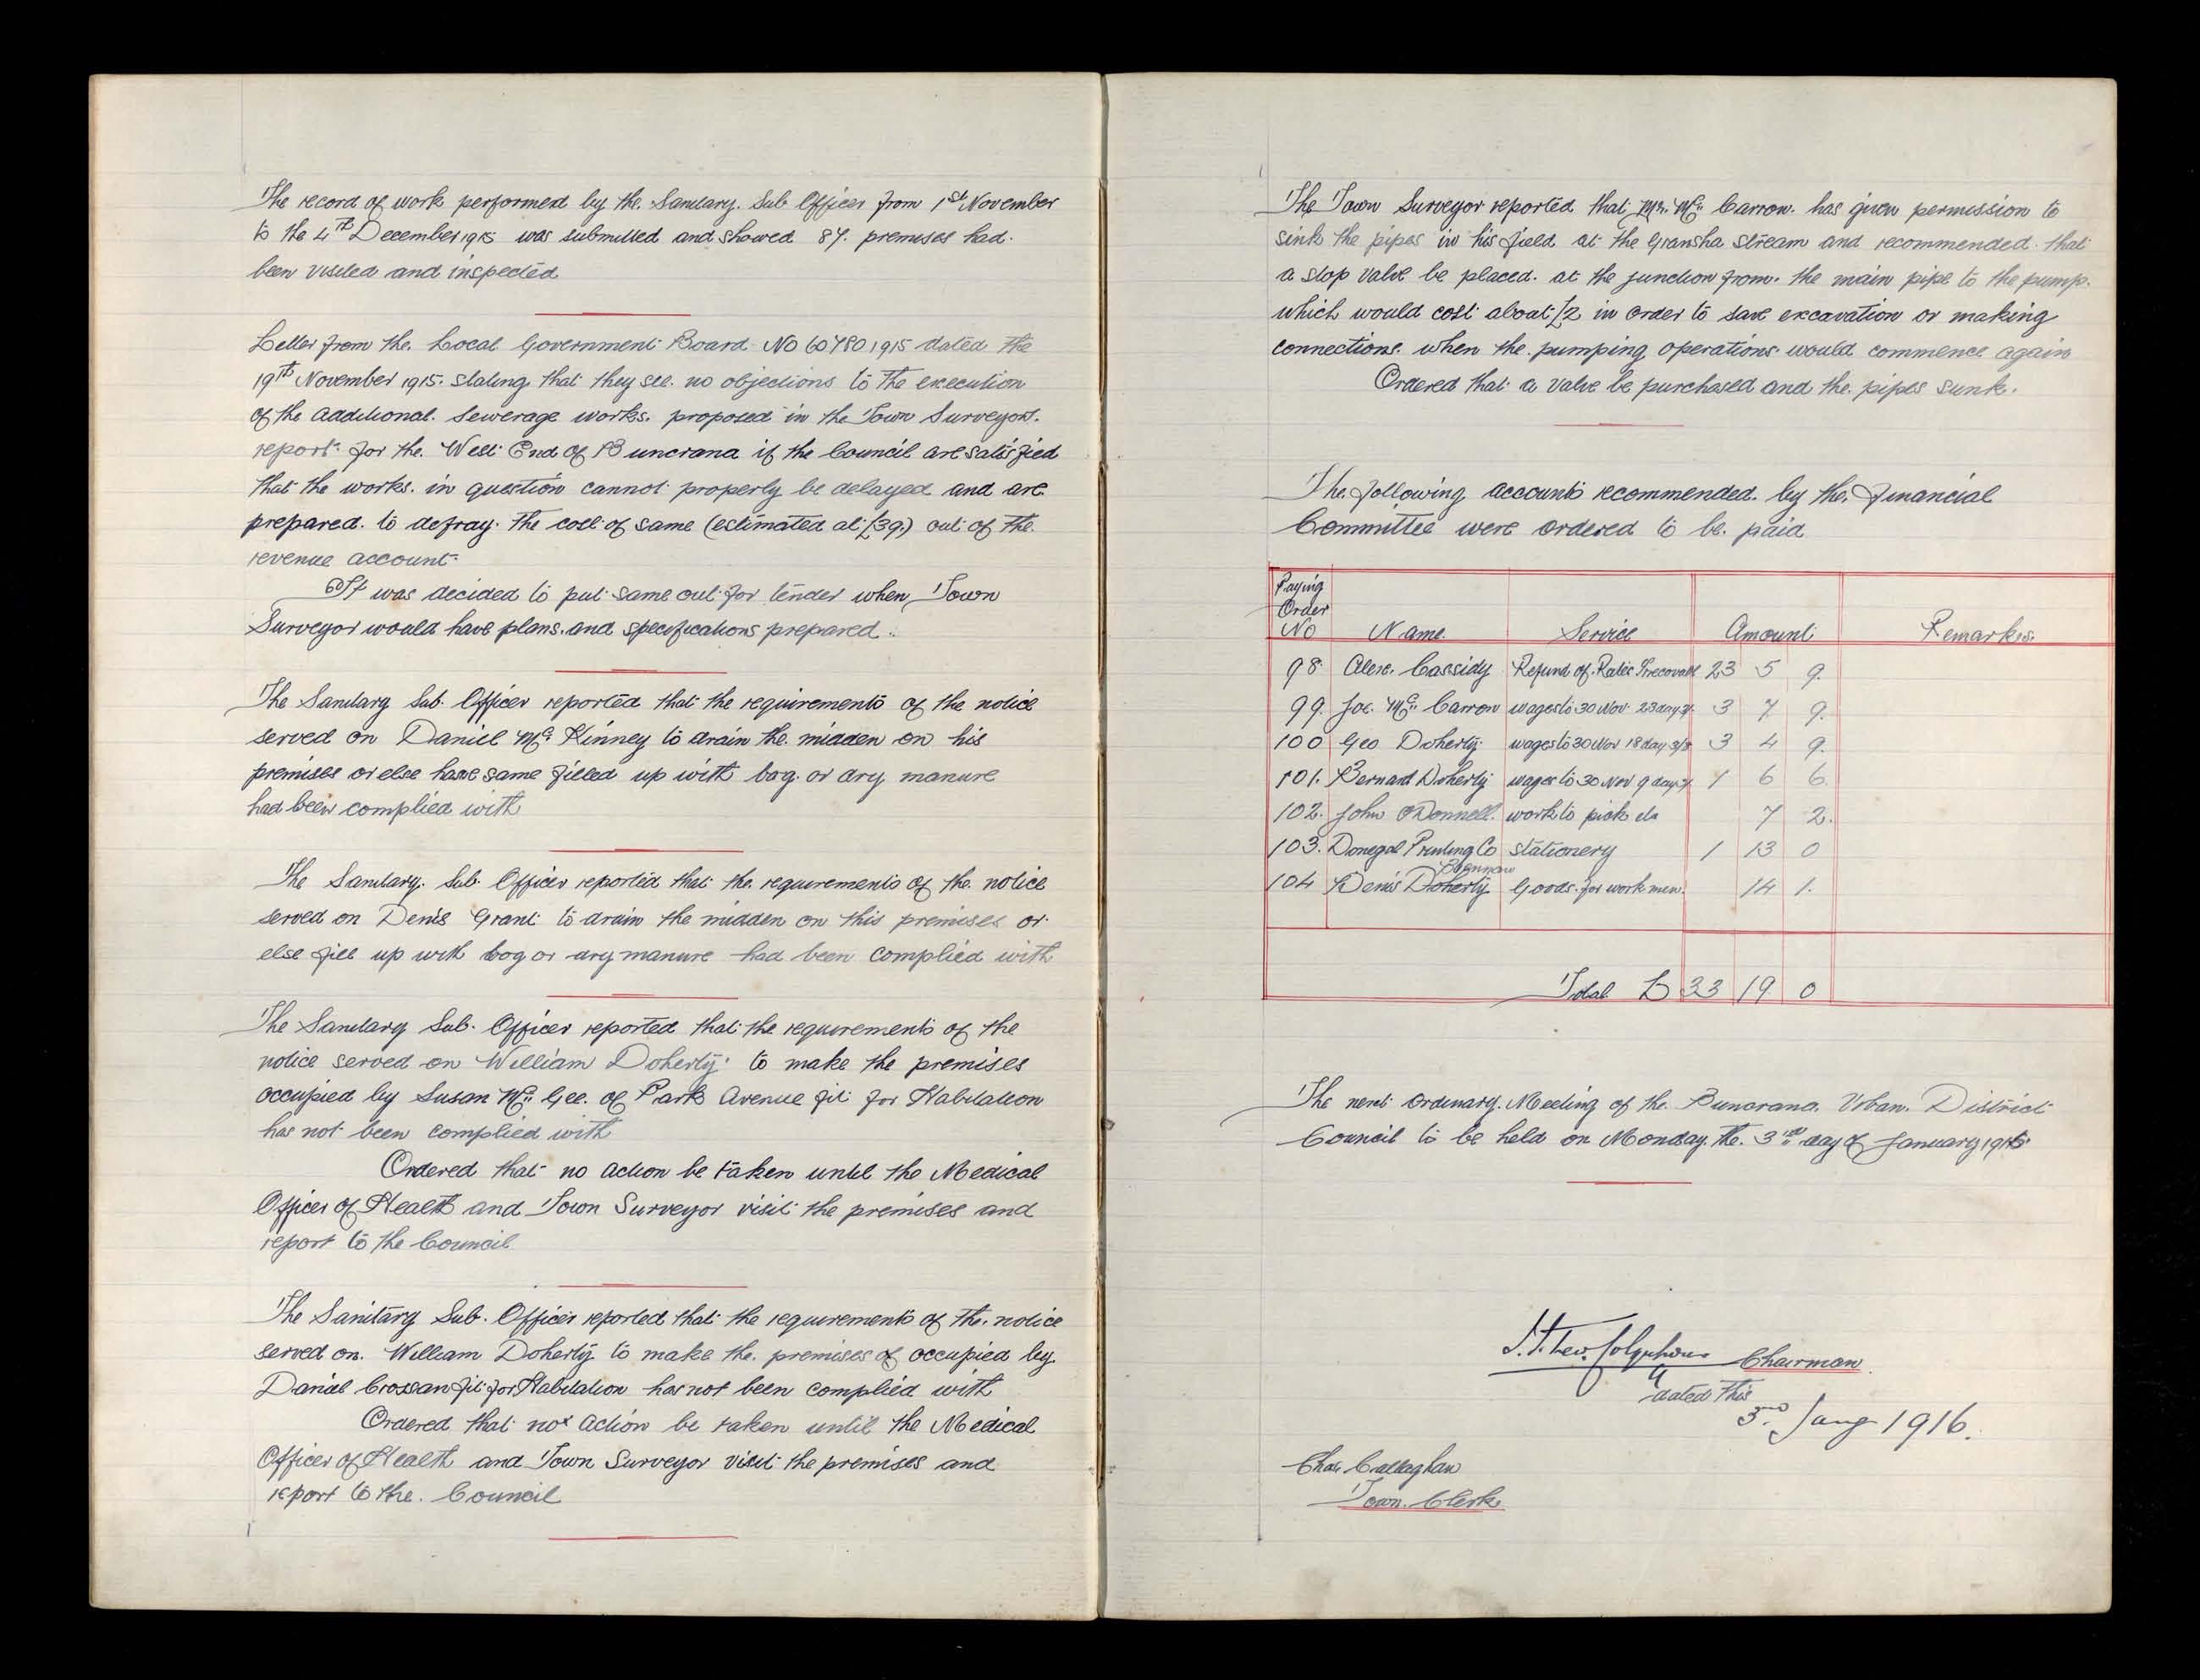 The record of work performed by the Sanitary Sub Officer from 1st November
to the 4th December 1915 was submitted and showed 87 premises had
been visited and inspected
Letter from the Local Government Board No 60780 1915 dated the
19th November 1915 stating that they see no objections to the execution
of the additional sewerage works proposed in the Town Surveyors
report for the West End of Buncrana if the Council are satisfied
that the works in question cannot properly be delayed and are
prepared to defray the cost of same (estimated at £39) out of the
revenue account
It was decided to put same out for tender when Town
Surveyor would have plans and specifications prepared
The Sanitary Sub Officer reported that the requirements of the notice
served on Daniel McKinney to drain the midden on his
premises or else have same filled up with bog or dry manure
had been complied with
The Sanitary Sub Officer reported that the requirements of the notice
served on Denis Grant to drain the midden on this premises or
else fill up with bog or dry manure had been complied with
The Sanitary Sub Officer reported that the requirements of the
notice served on William Doherty to make the premises
occupied by Susan McGee of Park Avenue fit for Habitation
has not been complied with
Ordered that no action be taken until the Medical
Officer of Health and Town Surveyor visit the premises and
report to the Council
The Sanitary Sub Officer reported that the requirements of the notice
served on William Doherty to make the premises of occupied by
Daniel Crossan fit for Habitation has not been complied with
Ordered that not action be taken until the Medical
Officer of Health and Town Surveyor visit the premises and
report to the Council
The Town Surveyor reported that Mr. McCarron has given permission to
sink the pipes in his field at the Gransha stream and recommended that
a stop valve be placed at the junction from the main pipe to the pump
which would cost about £2 in order to save excavation or making
connections when the pumping operations would commence again
Ordered that a valve be purchased and the pipes sunk.
The following accounts recommended by the Financial
Committee were ordered to be paid
Paying
Order
No Name Service Amount Remarks
98 Alex. Cassidy Refund of Rates Irrecovable 23 5 9
99 Jos. McCarron wages to 30 Nov 23 days 3 7 9
100 Geo Doherty wages to 30 Nov 18 day 3/8 3 4 9
101 Bernard Doherty wages to 30 Nov 9 days 1 6 6
102 John O'Donnell work to pick etc 7 2
103 Donegal Printing Co Stationery 1 13 0
104 Denis Doherty Goods for workmen 14 1
Total £ 33 19 0
The next ordinary Meeting of the Buncrana Urban District
Council to be held on Monday the 3rd day of January 1916
Chairman
dated this
3rd Jany 1916.
Chas Callaghan
Town Clerk